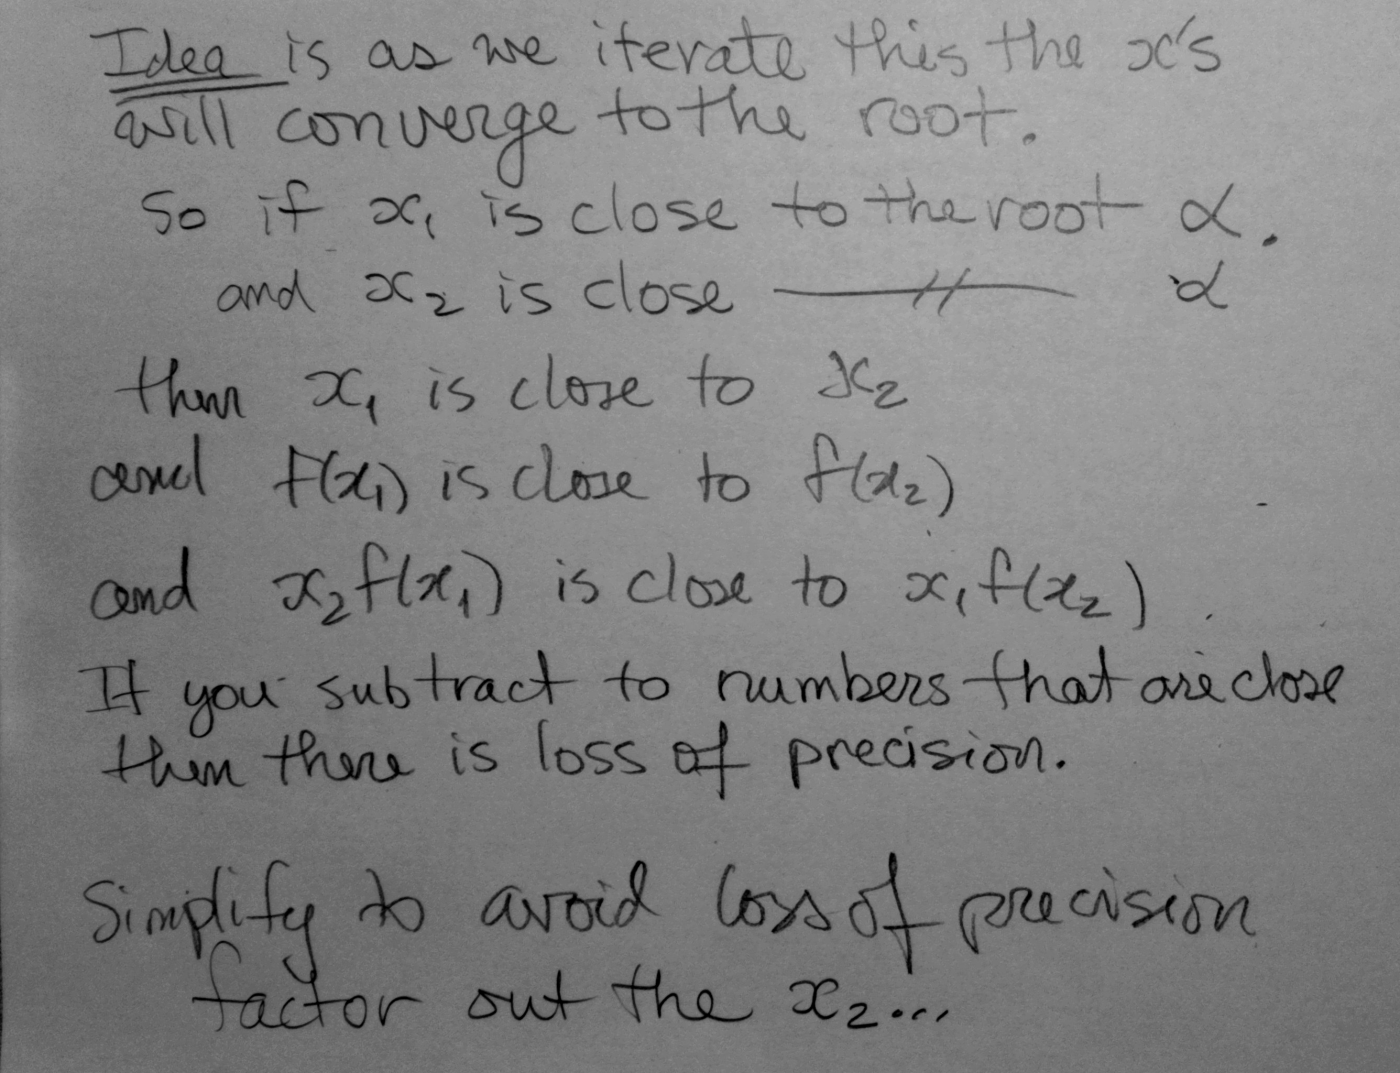 Idea is as we iterate this the x's
will converge to the root.
So if x₁ is close to the root α.
and x₂ is close —//— α
then x₁ is close to x₂
and f(x₁) is close to f(x₂)
and x₂f(x₁) is close to x₁f(x₂)
If you subtract to numbers that are close
then there is loss of precision.
Simplify to avoid loss of precision
factor out the x₂...